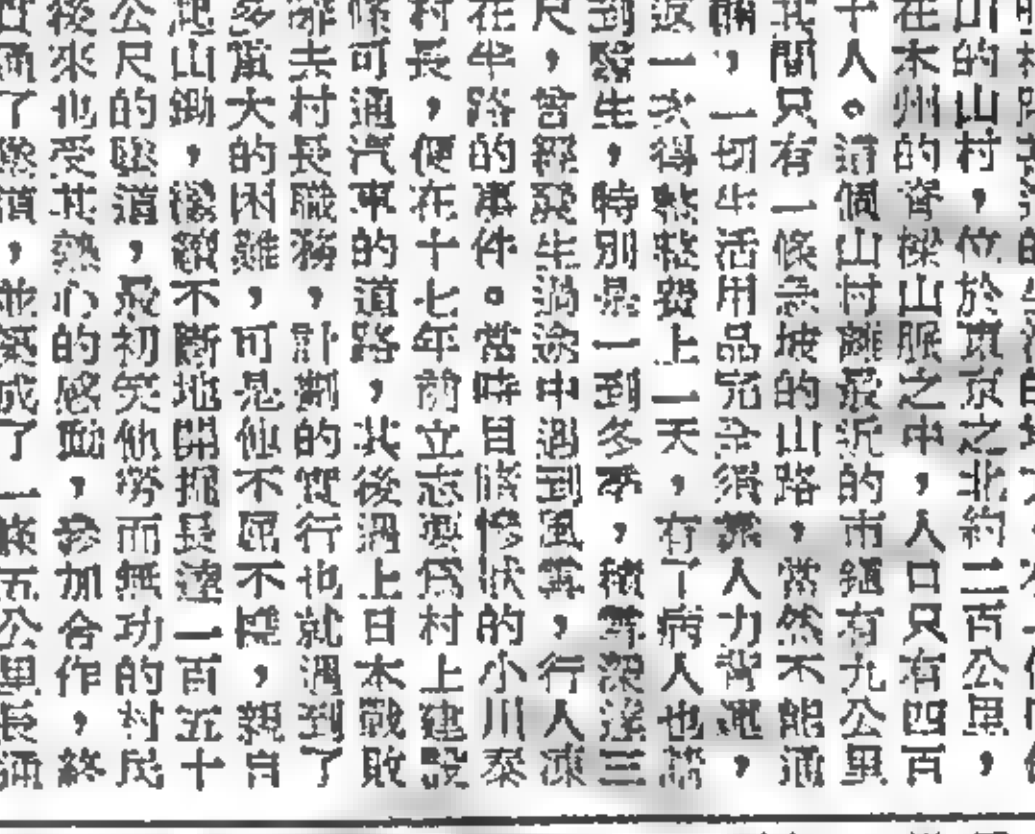 山的山村，位於東京之北約二百公里，
在木州的脊樑山脈之中，人口只有四百
十人。這個山村離最近的市鎮有九公里
其間只有一條急坡的山路，當然不能通
，一切生活用品完全須靠人力背運，
返一次得整整費上一天，有了病人也請
到醫生，特別是一到冬季，積雪深達三
尺，曾經發生過途中遇到風雪，行人凍
在半路的事件。當時目睹慘狀的小川泰
村長，便在十七年前立志要爲村上建設
條可通汽車的道路，其後遇上日本戰敗
辭去村長職務，計劃的實行也就遇到了
多重大的困難，可是他不屈不撓，親自
爬山鋤，繼續不斷地開掘長達一百五十
公尺的隧道，最初笑他勞而無功的村民
後來也受其熱心的感動，參加合作，終
通了隧道，並築成了一條五公里長通